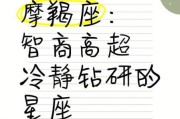 摩羯座：
智商高超
冷静钻研的
星座